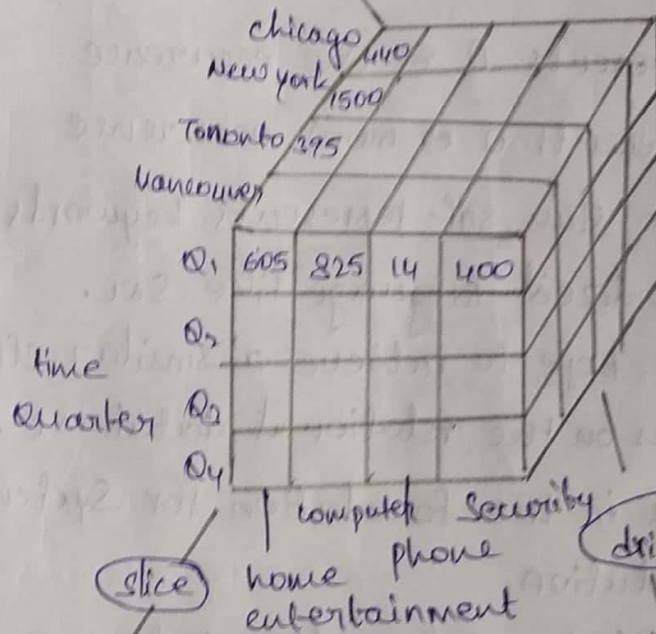 chicago 440
New york 1500
Toronto 395
Vancouver
Q1 605 825 14 400
Q2
time
Quarter Q3
Q4
computer Security
phone
slice home
entertainment